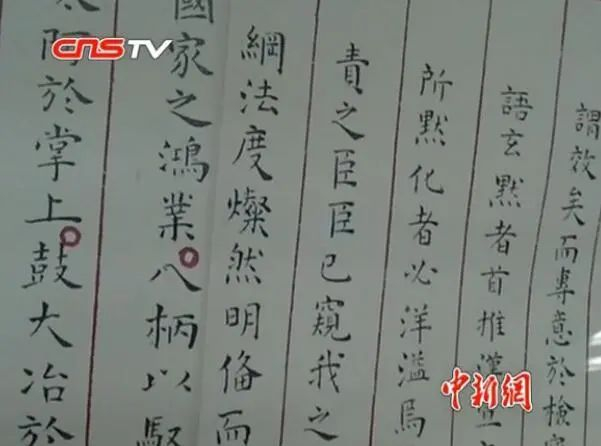 謂效矣而專意於檢
語玄默者首推漢
所默化者必洋溢焉
責之臣臣已窺我之
綱法度燦然明俻而
國家之鴻業八柄以馭
太阿於掌上鼓大冶於
CNSTV
中新網